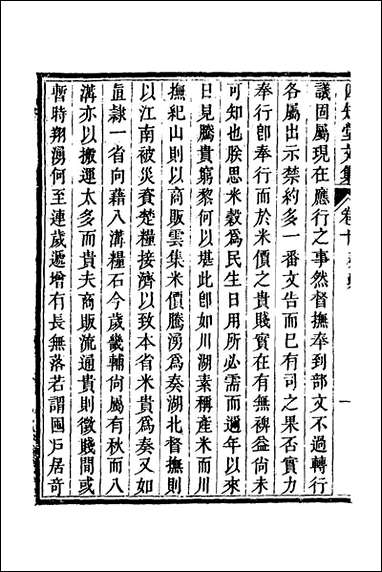 四知堂文集 卷十 奏疏 一
議固屬現在應行之事然督撫奉到部文不過轉行
各屬出示禁約多一番文告而已有司之果否實力
奉行卽奉行而於米價之貴賤實在有無裨益尙未
可知也朕思米穀爲民生日用所必需而邇年以來
日見騰貴窮黎何以堪此卽如川湖素稱產米而川
撫紀山則以商販雲集米價騰湧爲奏湖北督撫則
以江南被災資楚糧接濟以致本省米貴爲奏又如
直隸一省向藉八溝糧石今歲畿輔尙屬有秋而八
溝亦以搬運太多而貴夫商販流通貴則徵賤間或
暫時翔湧何至連歲遞增有長無落若謂囤戶居奇